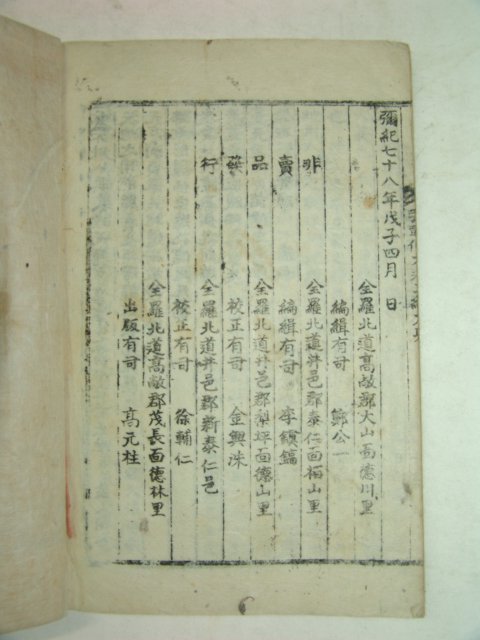 彌紀七十八年戊子四月　日
全羅北道高敞郡大山面德川里
編緝有司　鄭公一
非　全羅北道井邑郡泰仁面栢山里
賣　編緝有司　李鑌鎬
品　全羅北道井邑郡梨坪面德山里
校正有司　金興洙
行　全羅北道井邑郡新泰仁邑
校正有司　徐輔仁
全羅北道高敞郡茂長面德林里
出版有司　高元柱